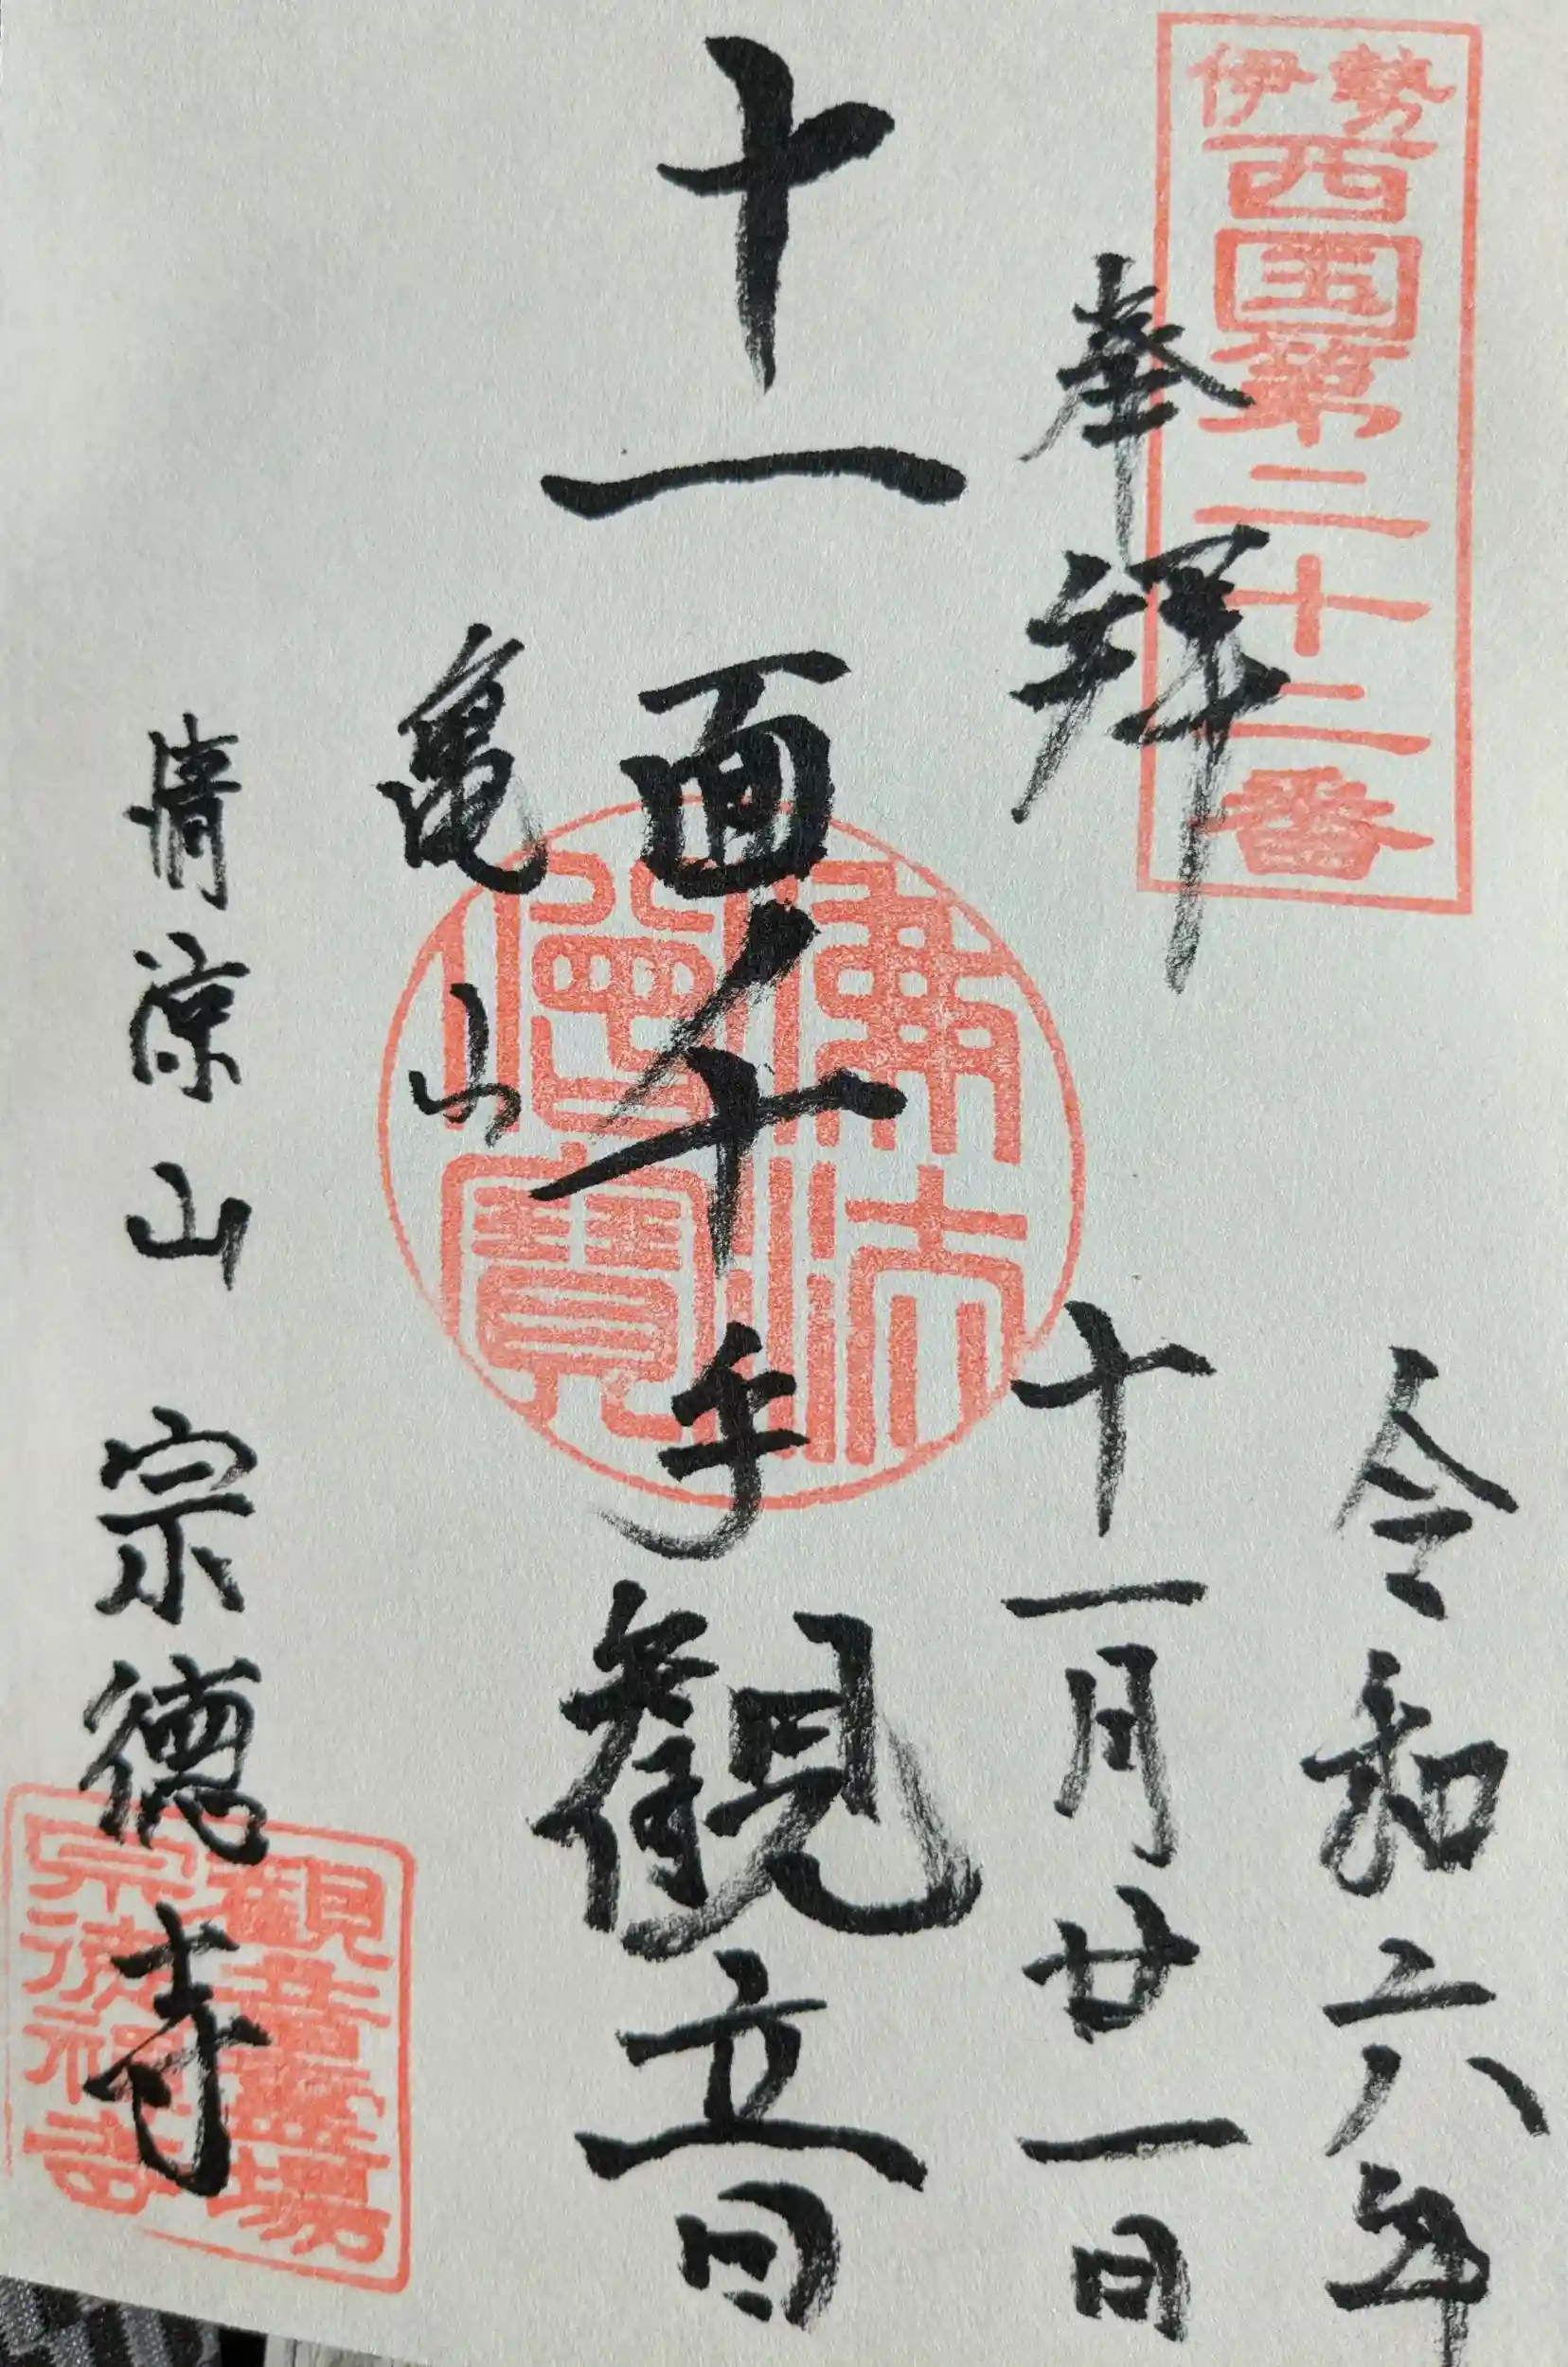 伊勢
西国第二十二番
奉拝
令和六年
十一月廿一日
十一面千手観立日
佛法
僧寶
亀山
清涼山 宗徳寺
観音霊場
宗徳禅寺